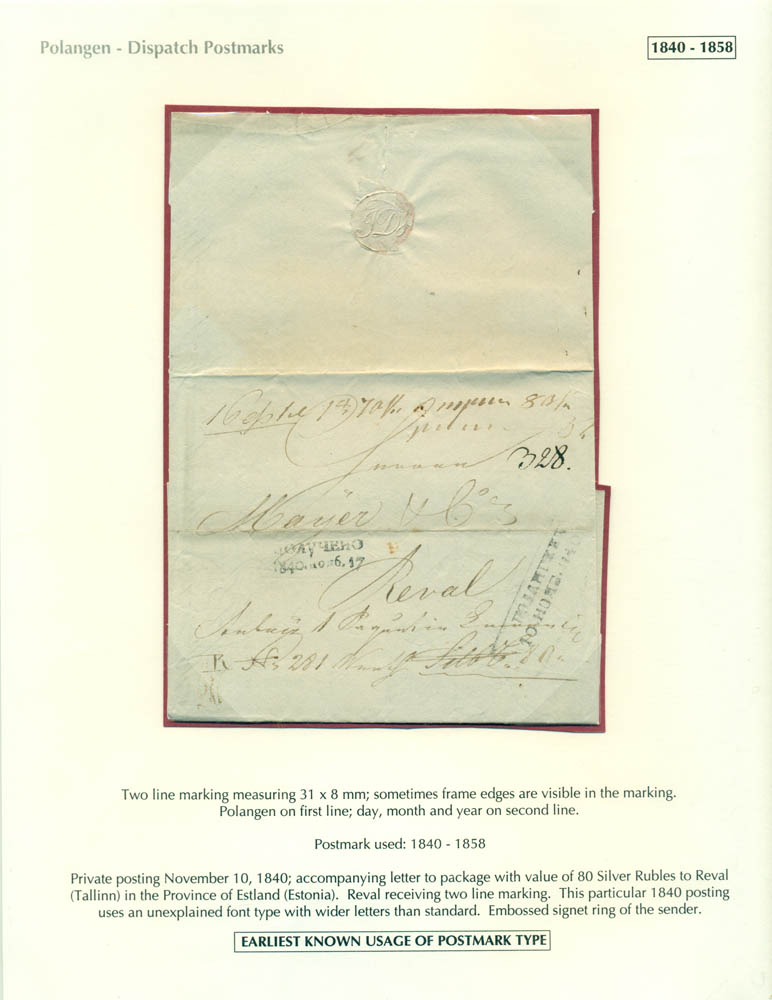 Polangen - Dispatch Postmarks
1840 - 1858
JD
328.
Mayer & Co
ПОЛУЧЕНО
1840. нояб. 17
Reval
No 281
Two line marking measuring 31 x 8 mm; sometimes frame edges are visible in the marking.
Polangen on first line; day, month and year on second line.
Postmark used: 1840 - 1858
Private posting November 10, 1840; accompanying letter to package with value of 80 Silver Rubles to Reval
(Tallinn) in the Province of Estland (Estonia).  Reval receiving two line marking.  This particular 1840 posting
uses an unexplained font type with wider letters than standard.  Embossed signet ring of the sender.
EARLIEST KNOWN USAGE OF POSTMARK TYPE